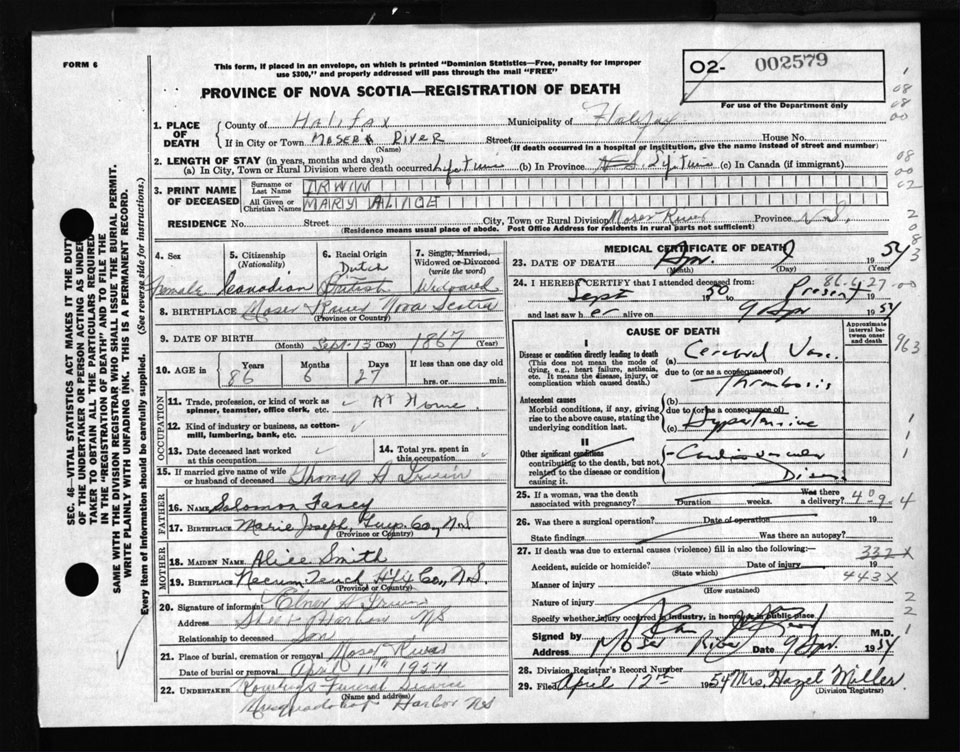 FORM 6
This form, if placed in an envelope, on which is printed "Dominion Statistics—Free, penalty for improper
use $300," and properly addressed will pass through the mail "FREE"
PROVINCE OF NOVA SCOTIA—REGISTRATION OF DEATH
O2- 002579
For use of the Department only
1. PLACE OF DEATH
County of Halifax Municipality of Halifax
If in City or Town Moser River Street House No.
(Name) (If death occurred in a hospital or institution, give the name instead of street and number)
2. LENGTH OF STAY (in years, months and days)
(a) In City, Town or Rural Division where death occurred Lifetime (b) In Province N.S. Lifetime (c) In Canada (if immigrant)
3. PRINT NAME OF DECEASED
Surname or Last Name IRWIN
All Given or Christian Names MARY ALINDE
RESIDENCE No. Street City, Town or Rural Division Moser River Province N.S.
(Residence means usual place of abode. Post Office Address for residents in rural parts not sufficient)
4. Sex Female
5. Citizenship (Nationality) Canadian
6. Racial Origin Dutch British
7. Single, Married, Widowed or Divorced (write the word) Widowed
8. BIRTHPLACE Moser River Nova Scotia
(Province or Country)
9. DATE OF BIRTH Sept 13 1867
(Month) (Day) (Year)
10. AGE in Years 86 Months 6 Days 27 If less than one day hrs. or min.
OCCUPATION
11. Trade, profession, or kind of work as spinner, teamster, office clerk, etc. At Home
12. Kind of industry or business, as cotton-mill, lumbering, bank, etc.
13. Date deceased last worked at this occupation
14. Total yrs. spent in this occupation
15. If married give name of wife or husband of deceased Thomas A Irwin
FATHER
16. NAME Solomon Fancy
17. BIRTHPLACE Marie Joseph, Guys. Co., N.S.
(Province or Country)
MOTHER
18. MAIDEN NAME Alice Smith
19. BIRTHPLACE Necum Teuch Hfx Co., N.S.
(Province or Country)
20. Signature of informant Irwin
Address Sheet Harbour NS
Relationship to deceased Son
21. Place of burial, cremation or removal Moser River
Date of burial or removal April 11th 1954
22. UNDERTAKER Funeral Service
(Name and address)
Musquodoboit Harbor NS
MEDICAL CERTIFICATE OF DEATH
23. DATE OF DEATH Apr. 9 1954
(Month) (Day) (Year)
24. I HEREBY CERTIFY that I attended deceased from:
Sept 1950 to Present 1954
86-6-27-00
and last saw her alive on 9 Apr 1954
CAUSE OF DEATH
Approximate interval between onset and death
I
Disease or condition directly leading to death
(This does not mean the mode of dying, e.g., heart failure, asthenia, etc. It means the disease, injury, or complication which caused death.)
(a) Cerebral Vasc.
due to (or as a consequence of)
Thrombosis
Antecedent causes
Morbid conditions, if any, giving rise to the above cause, stating the underlying condition last.
(b)
due to (or as a consequence of)
(c) Hypertensive
II
Other significant conditions
contributing to the death, but not related to the disease or condition causing it.
Cardiovascular
Disease
25. If a woman, was the death associated with pregnancy? Duration weeks. Was there a delivery?
26. Was there a surgical operation? Date of operation 19
State findings Was there an autopsy?
27. If death was due to external causes (violence) fill in also the following:—
332 X
Accident, suicide or homicide? Date of injury 19
(State which)
443X
Manner of injury
(How sustained)
Nature of injury
Specify whether injury occurred in industry, in home or public place
Signed by M.D.
Address Moser River Date 9 Apr. 1954
28. Division Registrar's Record Number
29. Filed April 12th 1954 Mrs. Hazel Miller
(Division Registrar)
SEC. 46—VITAL STATISTICS ACT MAKES IT THE DUTY
OF THE UNDERTAKER OR PERSON ACTING AS UNDER-
TAKER TO OBTAIN ALL THE PARTICULARS REQUIRED
IN THE "REGISTRATION OF DEATH" AND TO FILE THE
SAME WITH THE DIVISION REGISTRAR WHO SHALL ISSUE THE BURIAL PERMIT.
WRITE PLAINLY WITH UNFADING INK. THIS IS A PERMANENT RECORD.
Every item of information should be carefully supplied. (See reverse side for instructions.)